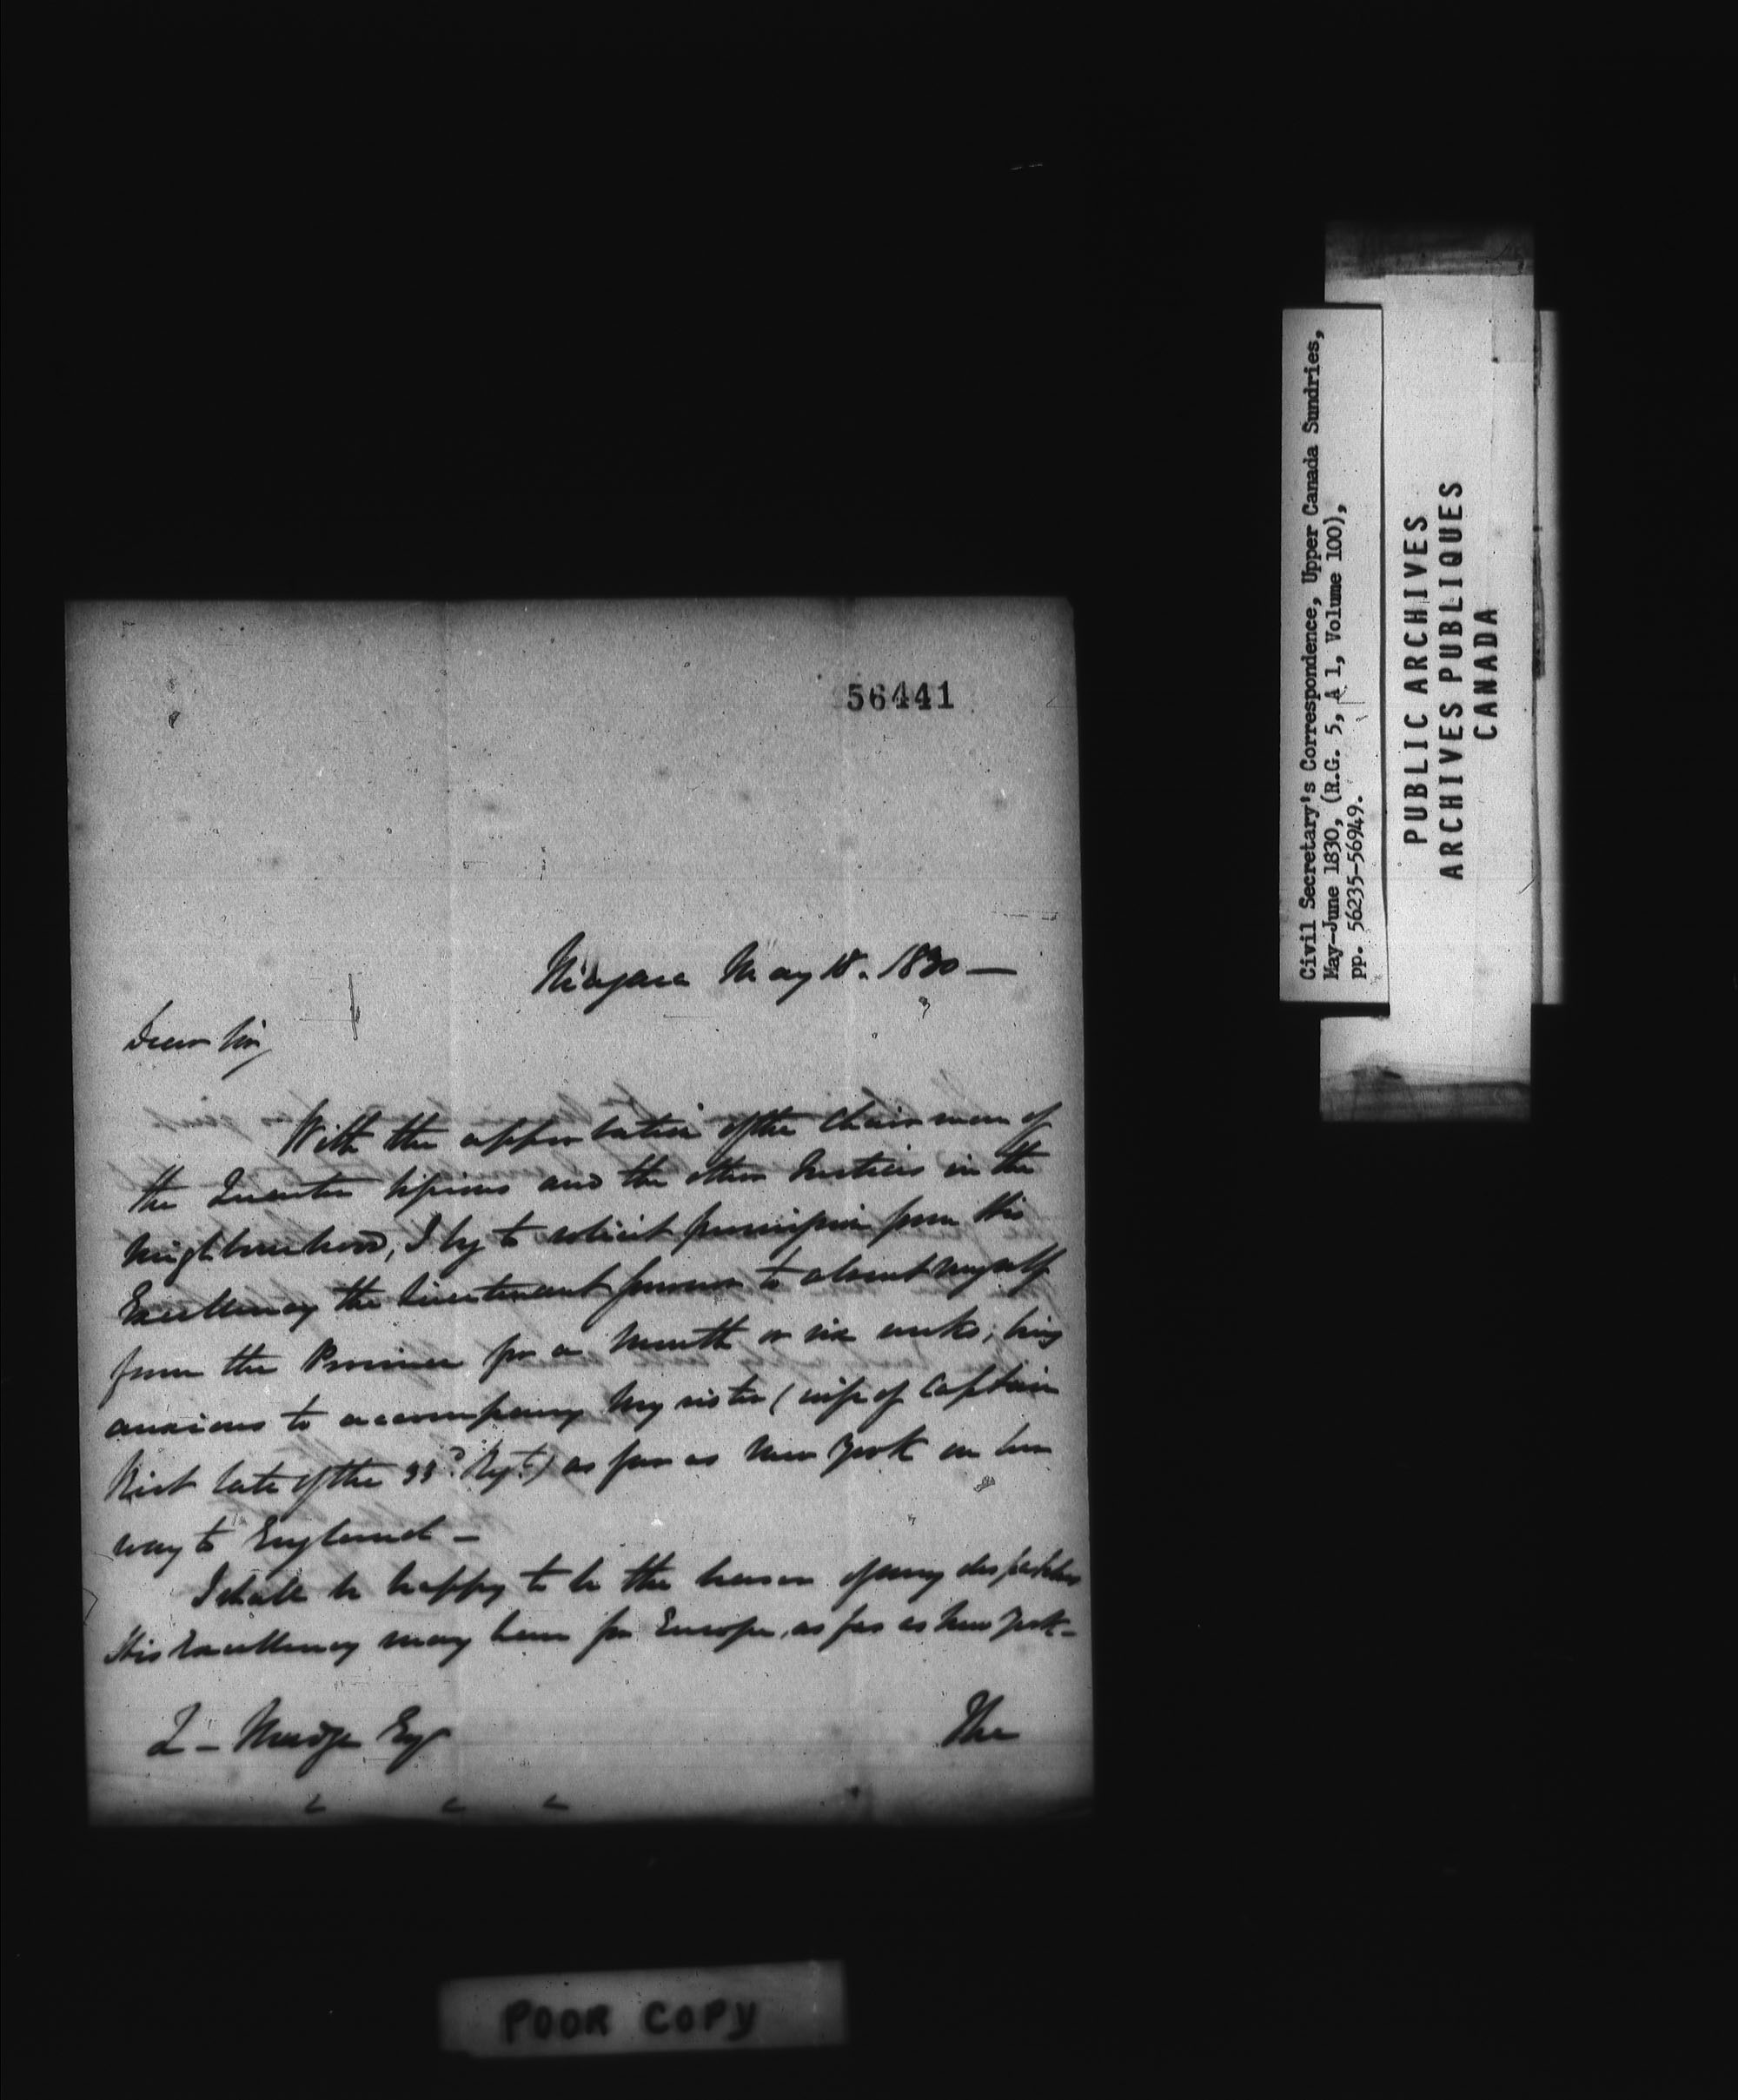 56441
Niagara May 18. 1830 —
Dear Sir,
With the approbation of the Chairman of
the Quarter Sessions and the other Justices in the
Neighbourhood, I beg to solicit permission from His
Excellency the Lieutenant Governor to absent myself
from the Province for a Month or six weeks; being
anxious to accompany My sister (wife of Captain
late of the Regt.) as far as New York on her
way to England —
I shall be happy to be the bearer of any despatches
His Excellency may have for Europe, as far as New York —
Z - Mudge Esqr
The
POOR COPY
Civil Secretary's Correspondence, Upper Canada Sundries,
May-June 1830, (R.G. 5, A 1, Volume 100),
pp. 56235-56949.
PUBLIC ARCHIVES
ARCHIVES PUBLIQUES
CANADA